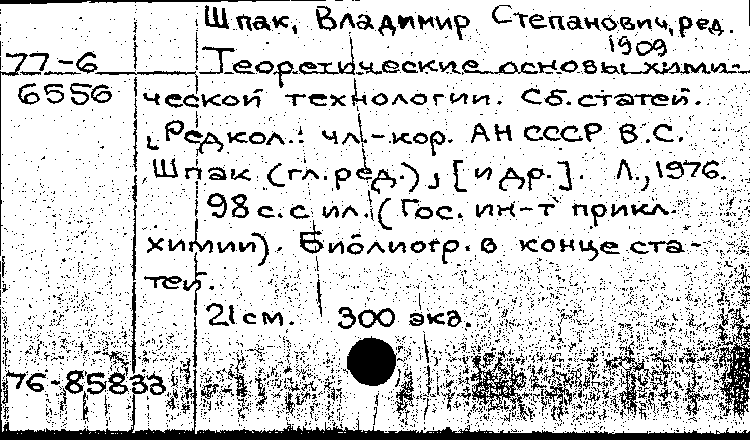 Шпак, Владимир Степанович, ред.
1909
77-6 Теоретические основы хими-
6556 ческой технологии. Сб. статей.
[Редкол.: чл.-кор. АН СССР В.С.
Шпак (гл. ред.), [и др.]. Л., 1976.
98 с. с ил. (Гос. ин-т прикл.
химии). Библиогр. в конце ста-
тей.
21 см. 300 экз.
76-85833